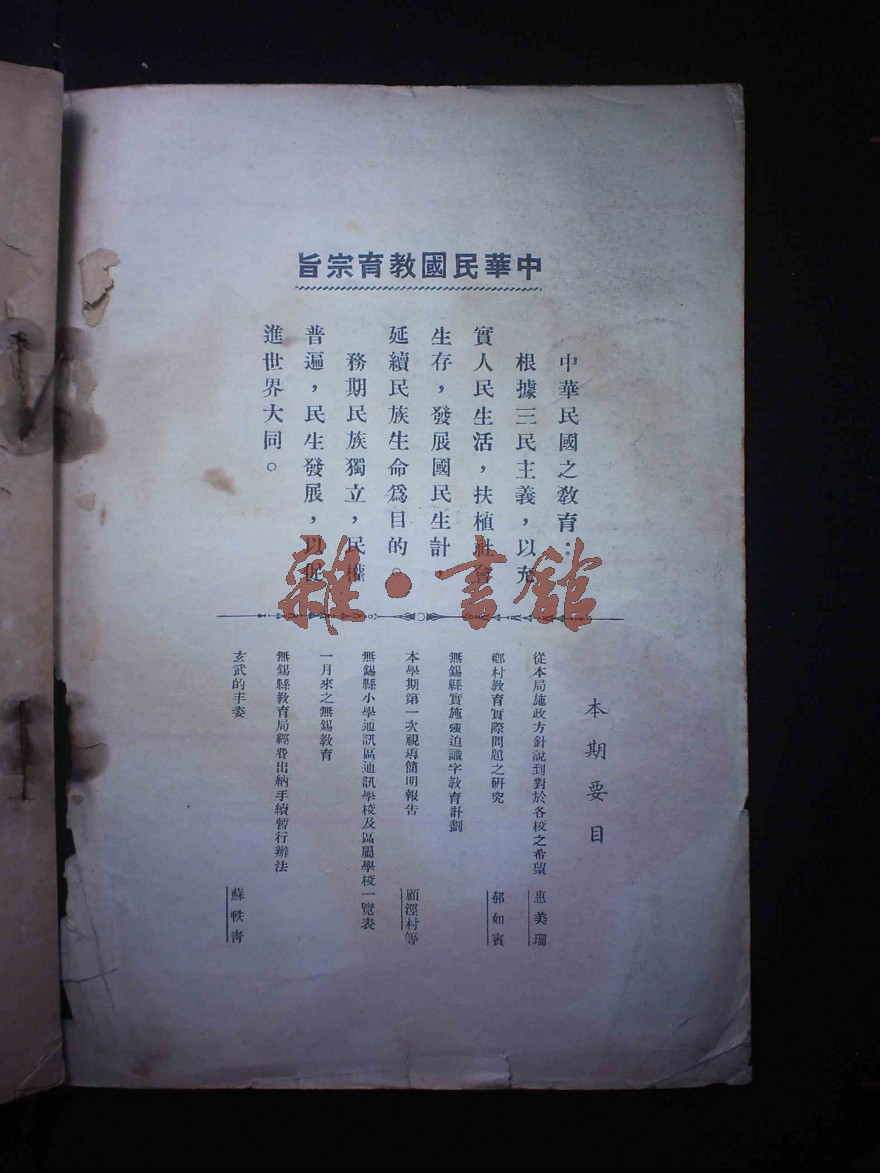 中華民國教育宗旨
中華民國之教育：
根據三民主義，以充
實人民生活，扶植社會
生存，發展國民生計，
延續民族生命爲目的。
務期民族獨立，民權
普遍，民生發展，以促
進世界大同。
雜·書館
本期要目
從本局施政方針說到對於各校之希望 惠美珊
鄉村教育實際問題之研究 郝如賓
無錫縣實施強迫識字教育計劃
本學期第一次視導簡明報告 顧涇村等
無錫縣小學通訊區通訊學校及區屬學校一覽表
一月來之無錫教育
無錫縣教育局經費出納手續暫行辦法
玄武的丰姿 蘇軼青